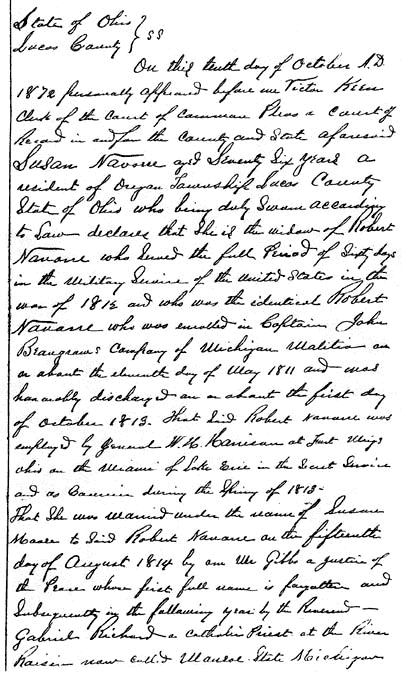 State of Ohio }
Lucas County } SS
On this tenth day of October A.D.
1872 personally appeared before me Victor Keen
Clerk of the Court of Common Pleas a Court of
Record in and for the County and State aforesaid
Susan Navarre aged Seventy Six years a
resident of Oregon Township Lucas County
State of Ohio who being duly Sworn according
to Law declares that She is the widow of Robert
Navarre who Served the full Period of Sixty days
in the Military Service of the United States in the
war of 1812 and who was the identical Robert
Navarre who was enrolled in Captain John
Company of Michigan Malitia on
or about the eleventh day of May 1811 and was
honorably discharged on or about the first day
of October 1813. That Said Robert Navarre was
employed by General W. H. Harrison at Fort Meigs
Ohio on the Miami of Lake Erie in the Secret Service
and as Courier during the Spring of 1813-
That She was married under the name of Susan
Moore to Said Robert Navarre on the fifteenth
day of August 1814 by one Mr Gibbs a Justice of
the Peace whose first full name is forgotten and
Subsequently in the following year by the Reverend -
Gabriel Richard a Catholic Priest at the River
Raisin now called Monroe State Michigan